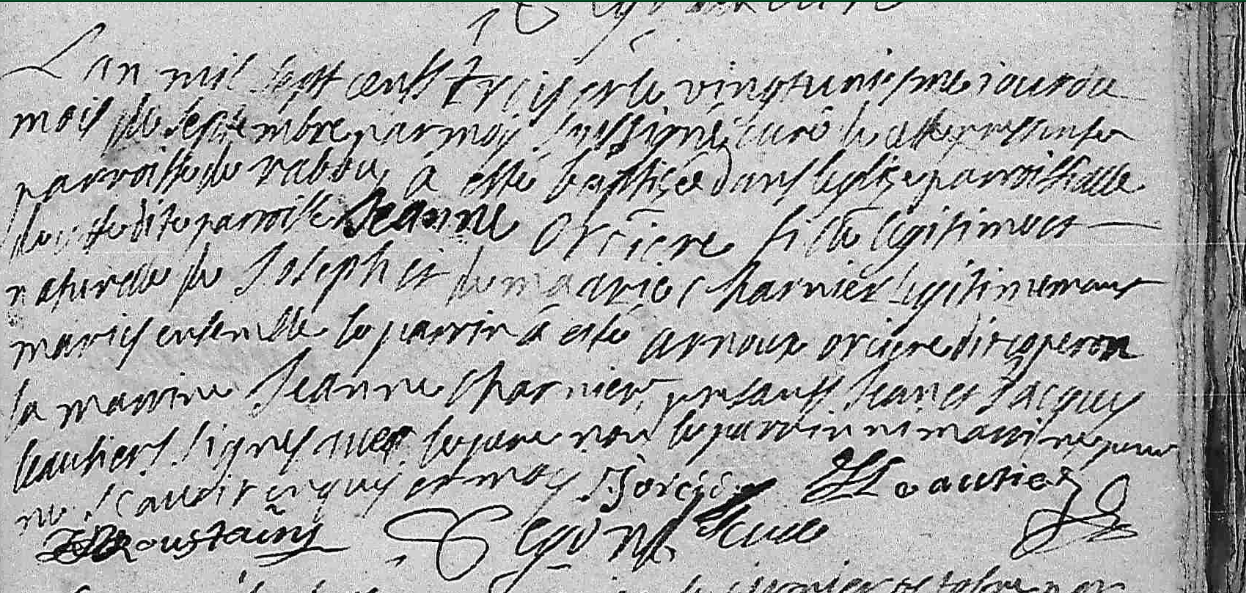 Lan mil sept cens trois et le vingtuniesme jour du
mois de septembre par moy soussigné curé de cette presente
parroisse de rabou, a esté baptisée dans leglise parroissialle
de cette dite parroisse Jeanne Orciere fille legitime et
naturelle de Joseph et de marie charnier legitimement
maries ensemble le parrin a esté arnoux orciere dit
la marrine Jeanne charnier, presants Jean et Jacques
leautiers signes avec le pere non le parrin ni marrine pour
ne scavoir enquis et moy J orciere Leautier
curé